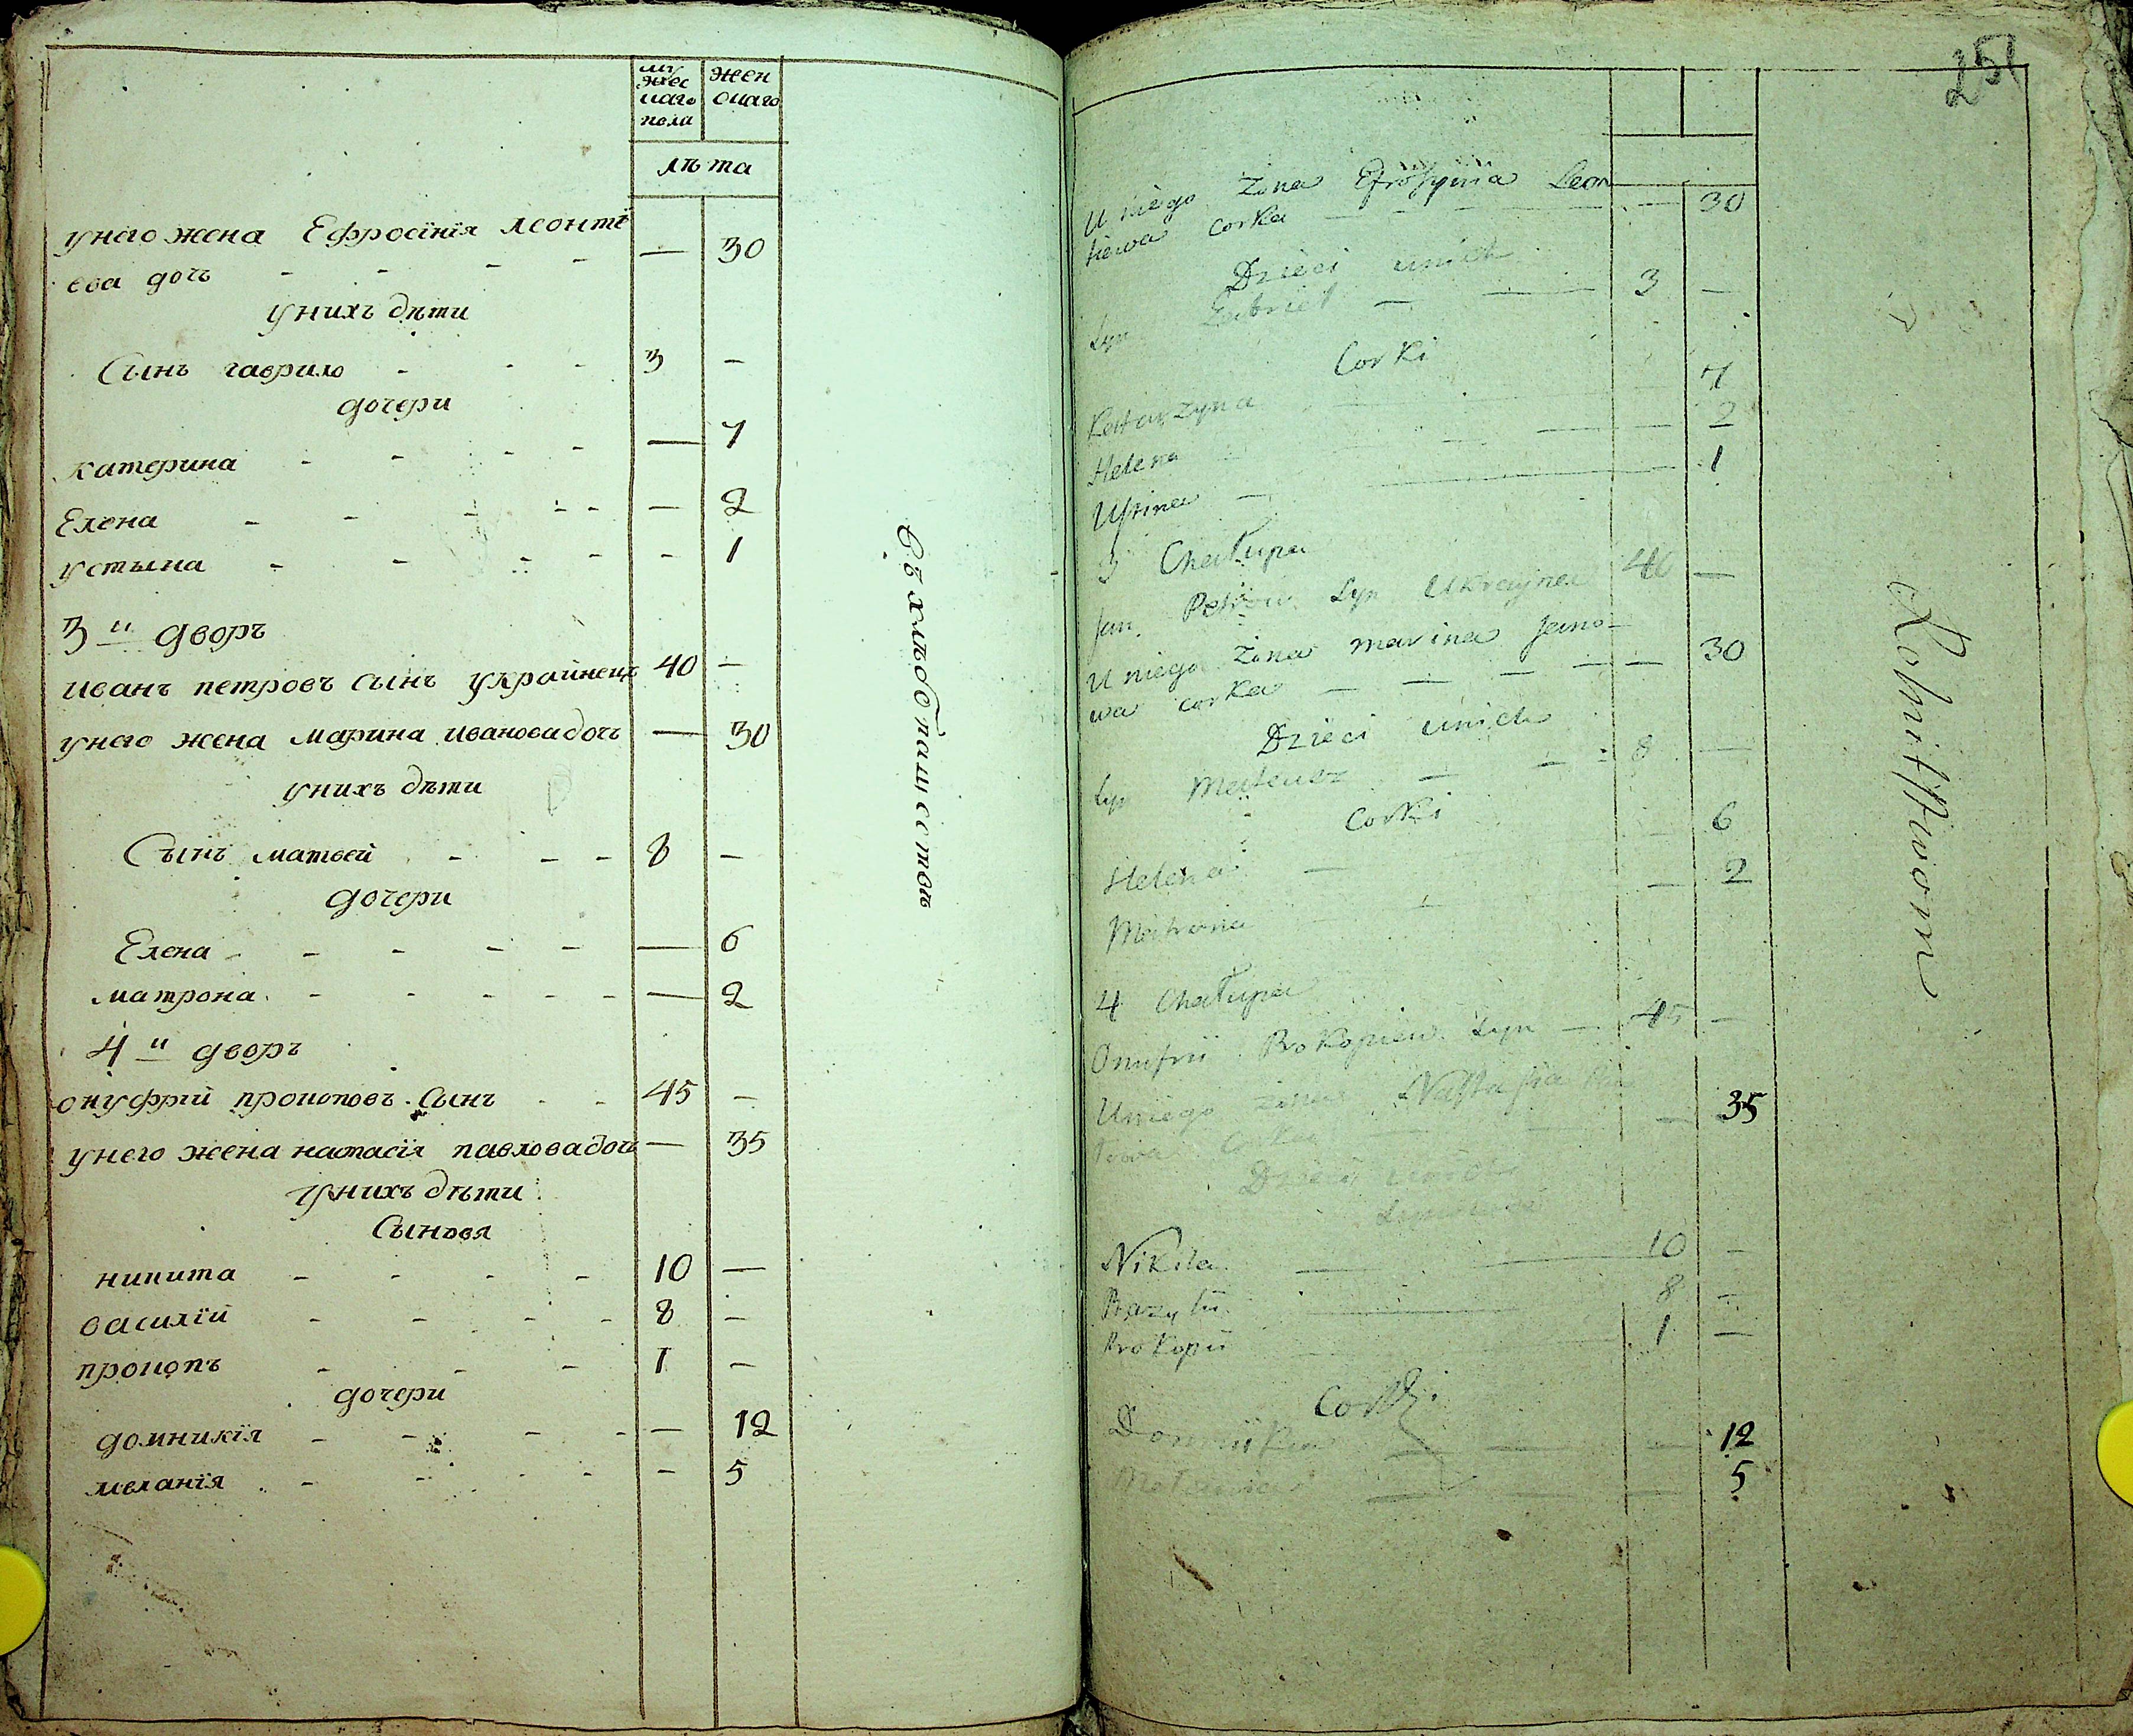 му
жес
каго
пола
жен
скаго
лѣта
у него жена Ефросїнїя леонтї
ева дочь - - - - — 30
у нихъ дѣти
Сынъ гаврило - - - 3 -
дочери
катерина - - - - — 7
Елена - - - - - — 2
устына - - - - - 1
3 й дворъ
иванъ петровъ сынъ украинецъ 40 —
у него жена марина иванова дочь — 30
у нихъ дѣти
Сынъ матвей - - - 8 -
дочери
Елена - - - - - — 6
матрона - - - - - — 2
4 й дворъ
онуфрїй прокоповъ сынъ - - 45 -
у него жена настасїя павлова дочь — 35
у нихъ дѣти
Сыновя
никита - - - - 10 —
василїй - - - - 8 -
прокопъ - - - 1 -
дочери
домникїя - - - - — 12
меланїя - - - - - 5
в хлѣбопашествѣ
251
U niego Zona Efrosyniia Leon
tiewa corka — 30
Dzieci unich
Syn Gabriel — — 3 —
Corki
Katarzyna 7
Helena — — 2
Ustina — 1
3 Chałupa
Jan Petrow Syn Ukraynec 40 —
U niego Zona marina Jano-
wa corka — — — — — 30
Dzieci unich
Syn Mateusz — — 8 —
Corki
Helena — 6
Matrona — 2
4 Chałupa
Onufrii Prokopiew Syn — 45 —
U niego zona Nastasia Paw
łowa Corka — 35
Dzieci unich
Synowie
Nikita — — 10 —
Bazylii — 8 —
Prokopii 1 —
Corki
Domnikia — — — 12
Melania — — — 5